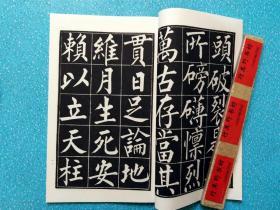 頭破裂是
所磅礴凛烈
萬古存當其
貫日足論地
維月生死安
賴以立天柱